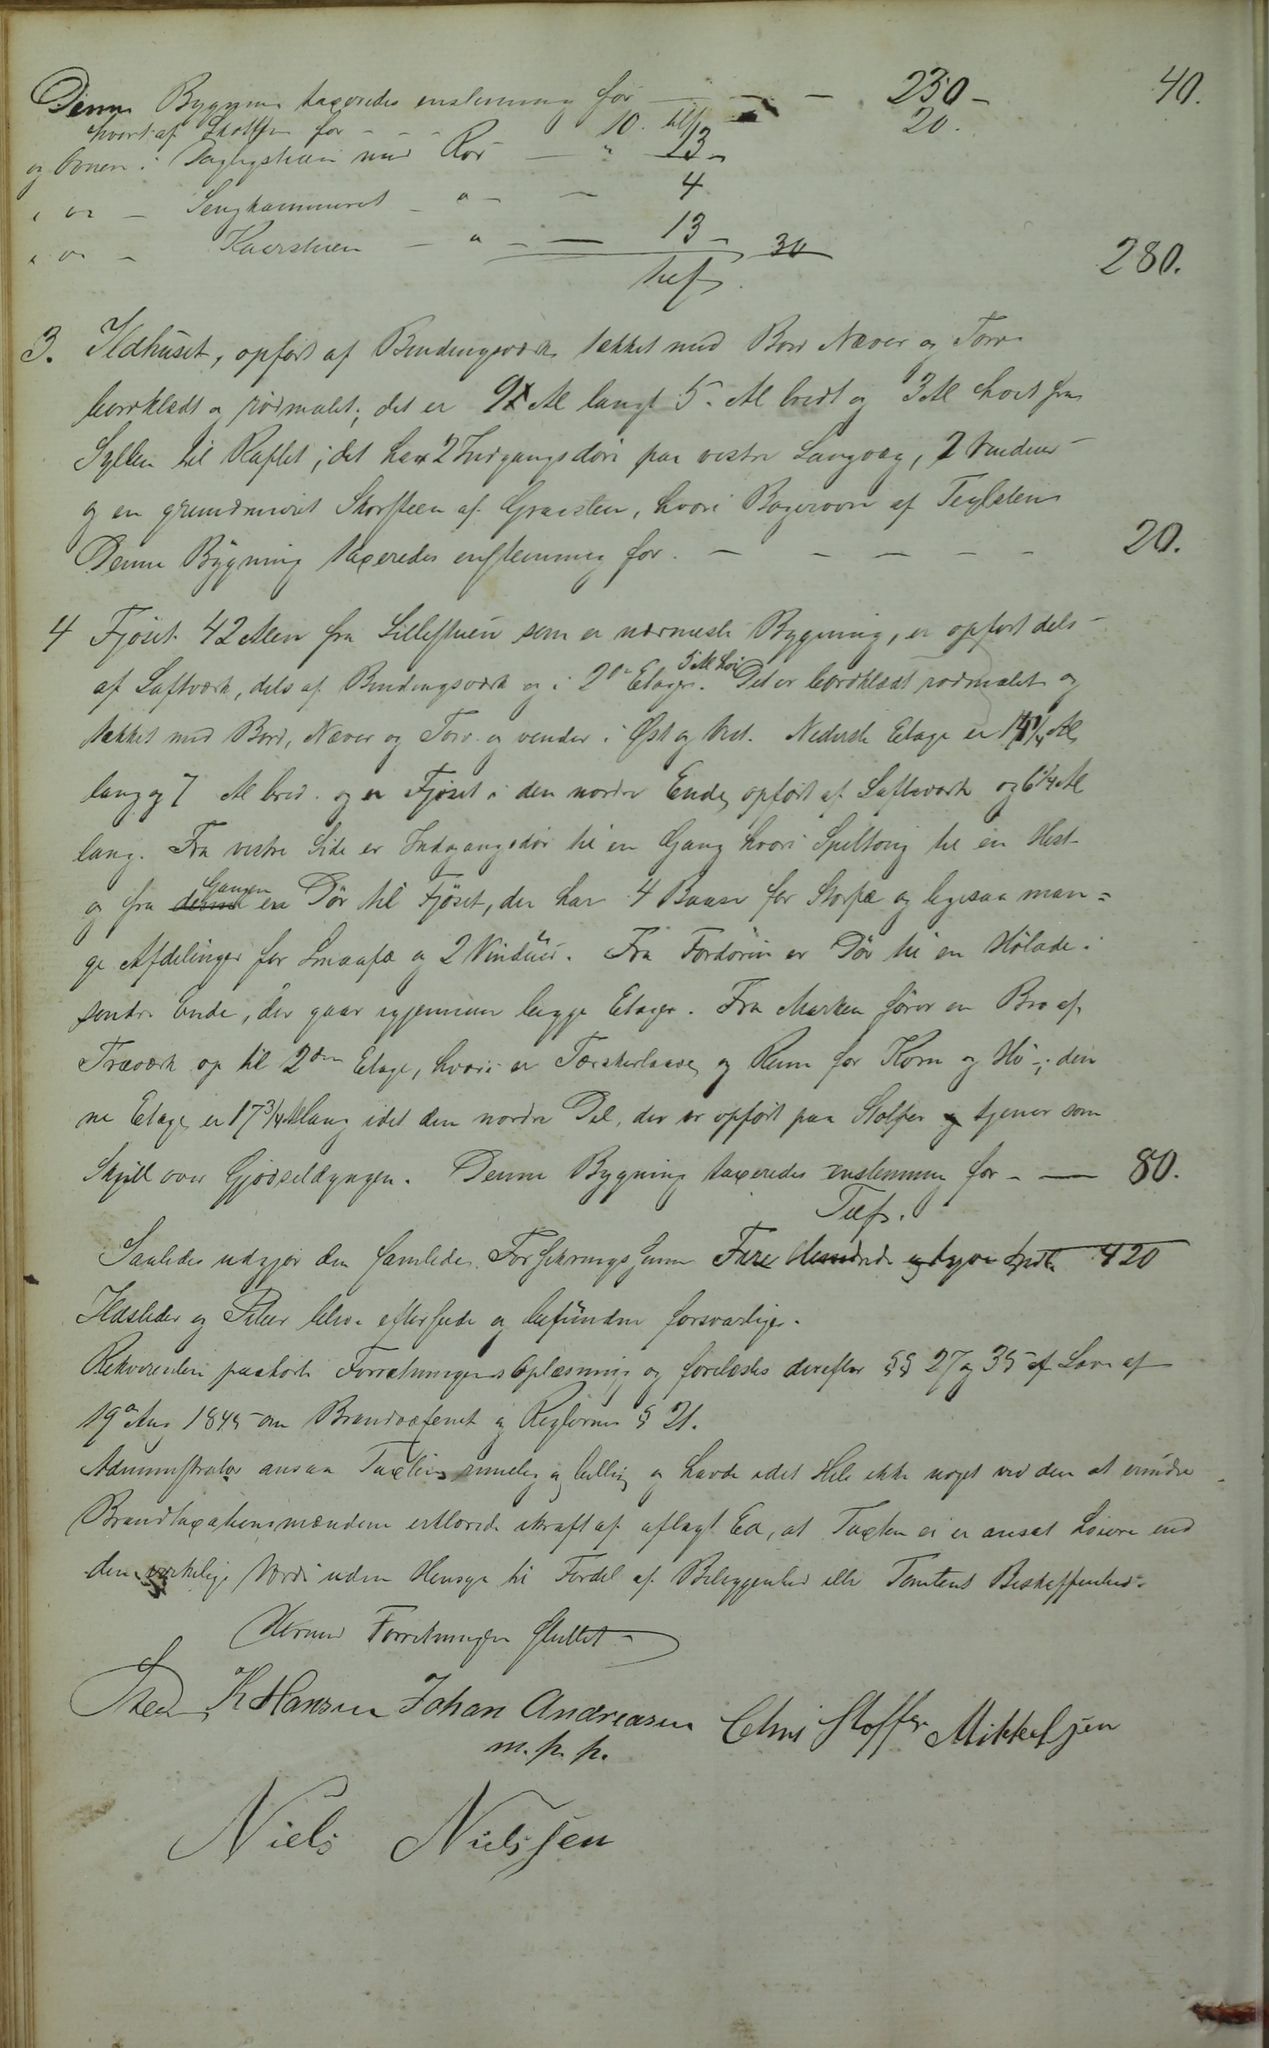 Denne Bygning taxeredes enstemmig for — — — 250 — 40.
hvoraf Skottsten for — — — 10. til 20.
og Ovnen i Dagligstuen med Rör — " 13 —
" " — Sengkammeret — " — — 4
" " — Kaarstuen — " — — 13 — 30
tilf. 280.
3. Ildhuset, opfört af Bindingsværk tækket med Bord Næver og Torv
bordklædt og rödmalet; det er 9 Al langt 5. Al bredt og 3 Al höit fra
Syllen til Raftet; det har 2 Indgangsdöre paa vestre Langvæg, 2 Vinduer
og en grundmuret Skorsteen af Graasten, hvori Bagerovn af Teglsten
Denne Bygning taxeredes enstemmig for. — — — — — 20.
4 Fjöset 42 Alen fra Lillestuen som er nærmeste Bygning, er opfört dels
af Laftværk, dels af Bindingsværk og i 2de Etager. 5 Al höi Det er bordklædt rödmalet og
tækket med Bord, Næver og Torv og vender i Öst og Vest. Nederste Etage er 1/4 Al
lang og 7 Al bred. og er Fjöset i den nordre Ende, opfört af Laftværk og 6 1/4 Al
lang. Fra vestre Side er Indgangsdör til en Gang hvori Spiltoug til en Hest
og fra denne Gangen en Dör til Fjöset, der har 4 Baase for Storfæ og ligesaa man=
ge Afdelinger for Smaafæ og 2 Vinduer. Fra Fordören er Dör til en Hölade i
söndre Ende, der gaar igjennem begge Etager. Fra Marken förer en Bro af
Træværk op til 2den Etage, hvori er Tærskerlaave og Rum for Korn og Hö; den
ne Etage er 17 3/4 Al lang idet den nordre Del, der er opfört paa Stolper og tjener som
Skjul over Gjödseldyngen. Denne Bygning taxeredes enstemmig for — — 80.
Tilf.
Saaledes udgjör den samlede Forsikringssum Fire Hundrede og tyve Spdlr 420
Ildsteder og Piber blev efterseede og befundne forsvarlige.
Rekvirenten paahörte Forretningens Oplæsning og forelæstes derefter §§ 27 og 35 af Lov af
19de Aug 1845 om Brandvæsenet og Reglernes § 21.
Administrator ansaa Taxten rimelig og billig og havde idet Hele ikke noget ved den at erindre
Brandtaxationsmændene erklærede ikraft af aflagt Ed, at Taxten ei er ansat höiere end
den virkelige Værdi uden Hensyn til Fordel af Beliggenhed eller Tomtens Beskaffenhed.
Hermed Forretningen sluttet
Fred. K Hansen Johan Andreasen Christoffer Mikkelsen
m. p. p.
Niels Nielssen